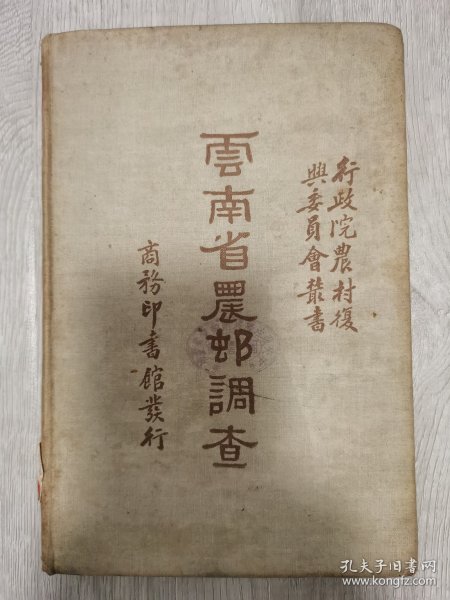 行政院農村復
興委員會叢書
雲南省農邨調查
商務印書館發行
孔夫子旧书网
www.kongfz.com